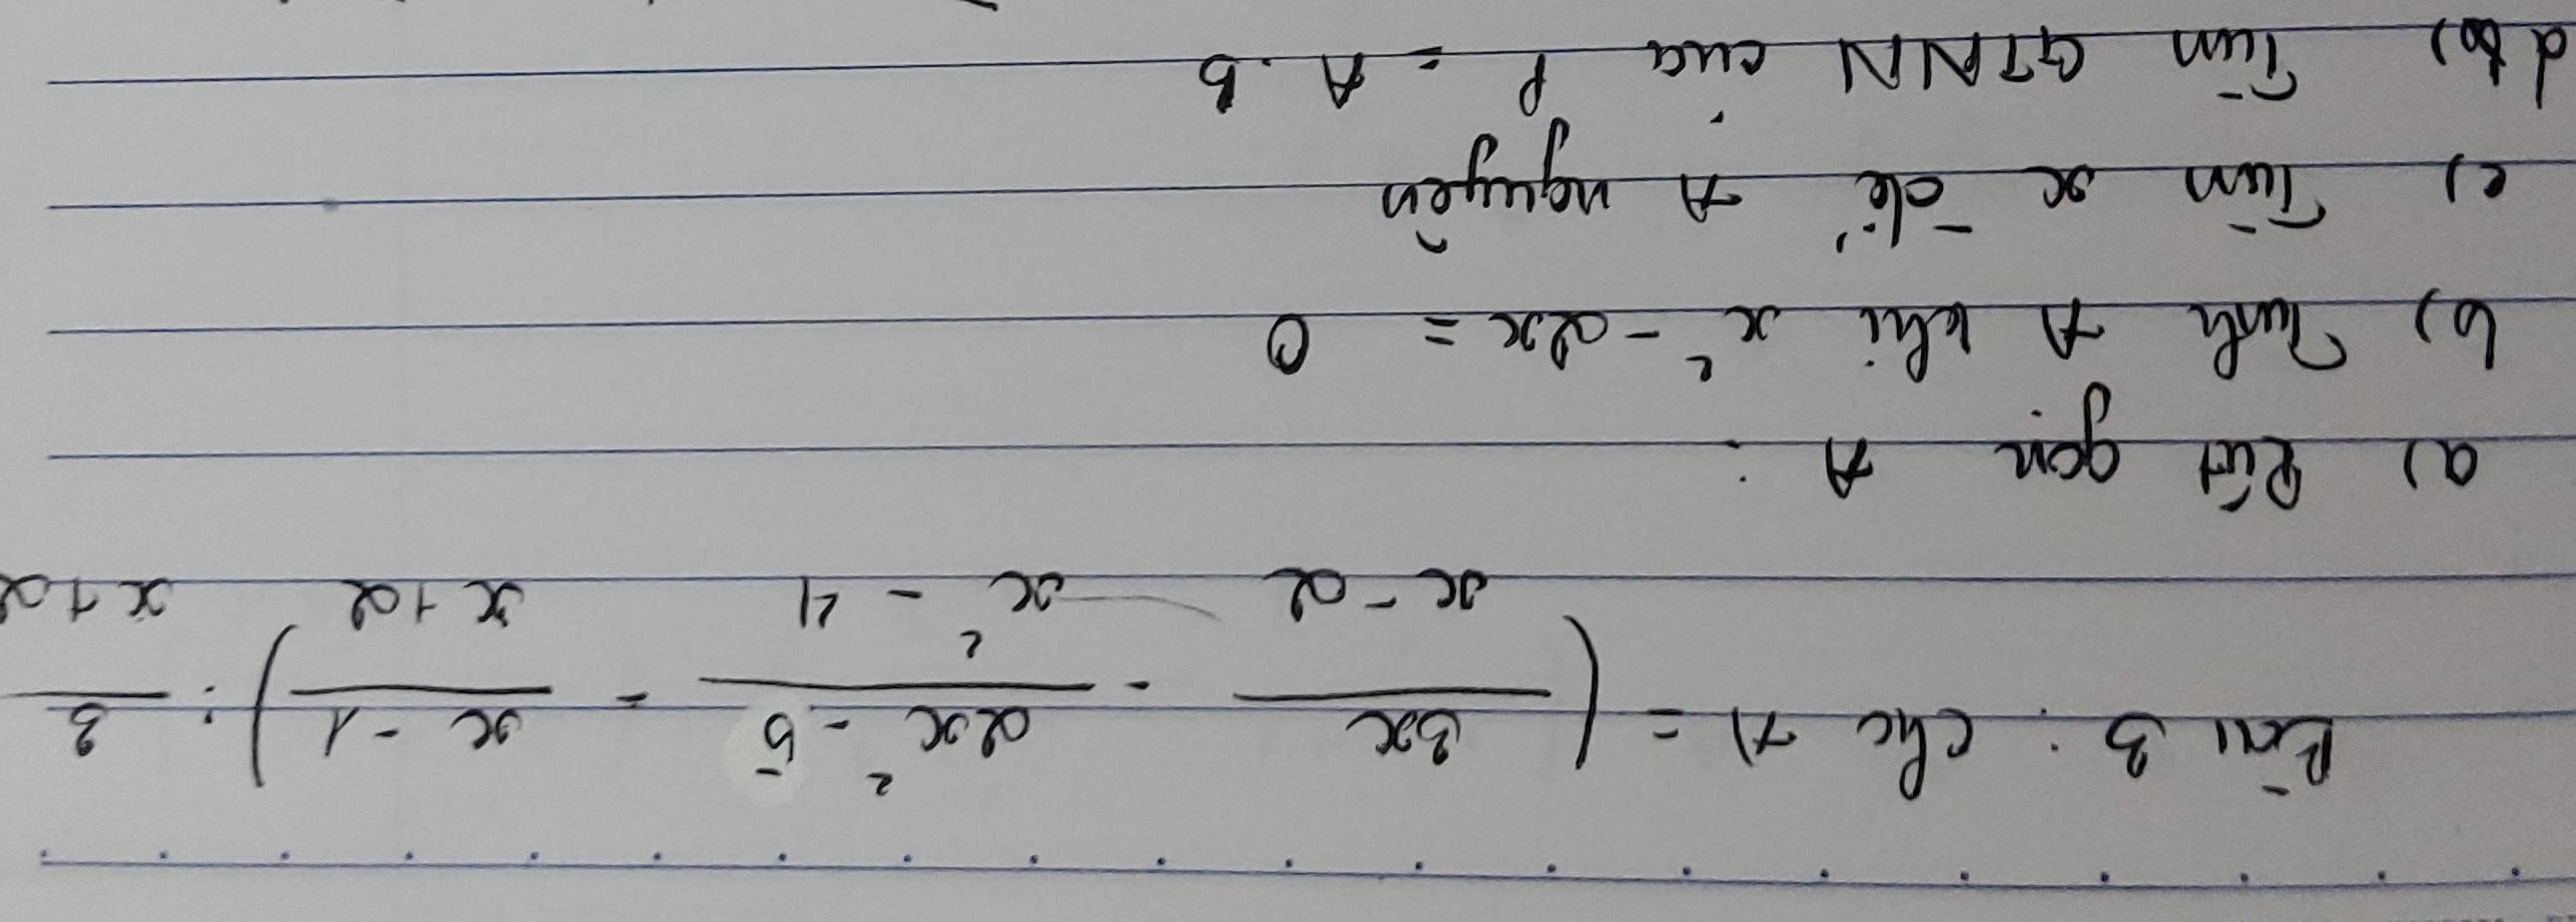 Bài 3: cho A = (3x/x-2 - 2x²-5/x²-4 - x-1/x+2) : 3/x+2
a) Rút gọn A.
b) Tính A khi x² - 2x = 0
c) Tìm x để A nguyên
d) Tìm GTNN của P = A.B